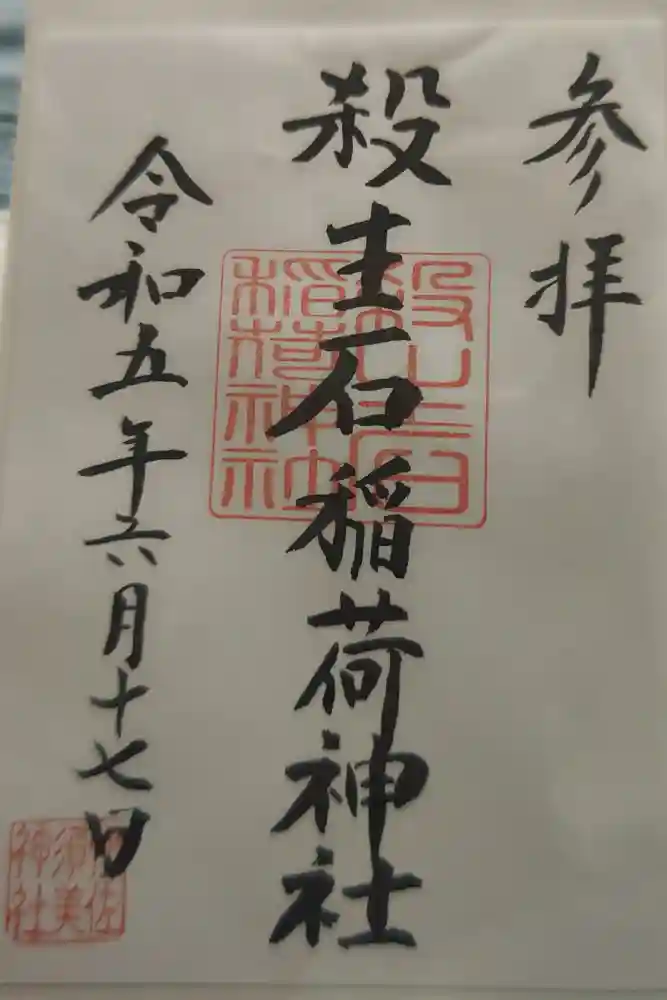 参拝
殺生石稲荷神社
殺生石
稲荷神社
令和五年六月十七日
伊佐
須美
神社